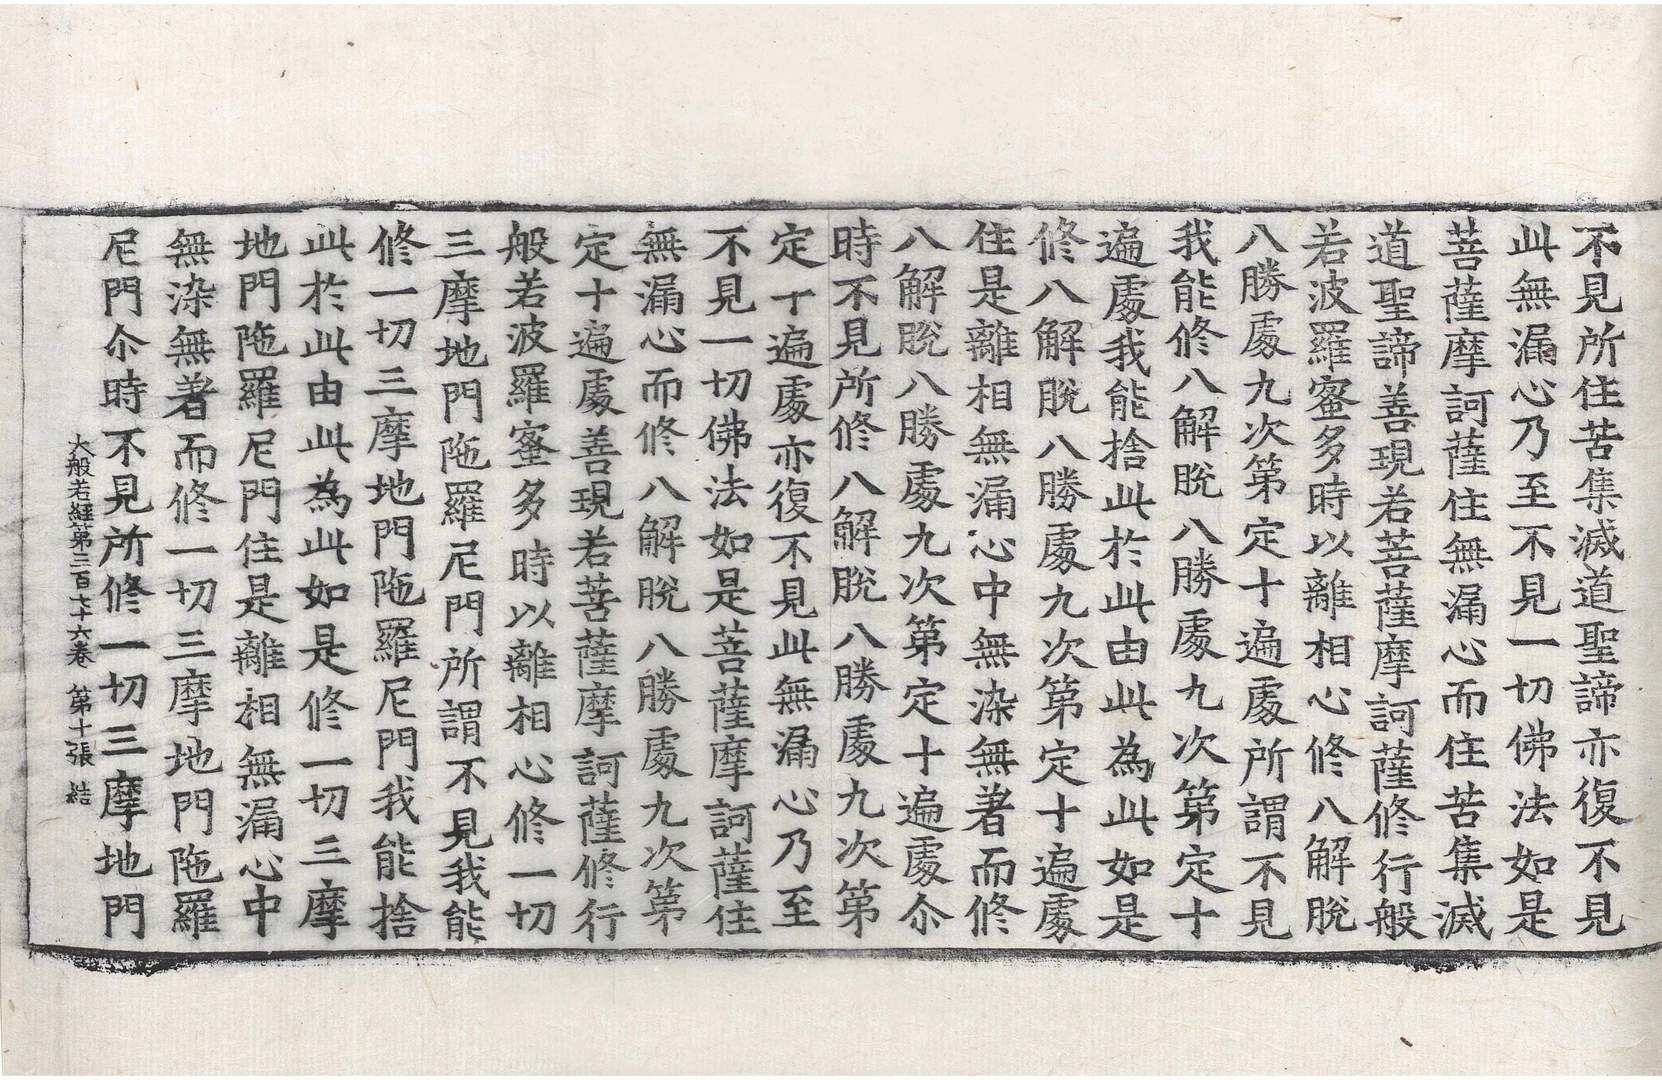 不見所住苦集滅道聖諦亦復不見
此無漏心乃至不見一切佛法如是
菩薩摩訶薩住無漏心而住苦集滅
道聖諦善現若菩薩摩訶薩修行般
若波羅蜜多時以離相心修八解脫
八勝處九次第定十遍處所謂不見
我能修八解脫八勝處九次第定十
遍處我能捨此於此由此為此如是
修八解脫八勝處九次第定十遍處
住是離相無漏心中無染無著而修
八解脫八勝處九次第定十遍處尒
時不見所修八解脫八勝處九次第
定十遍處亦復不見此無漏心乃至
不見一切佛法如是菩薩摩訶薩住
無漏心而修八解脫八勝處九次第
定十遍處善現若菩薩摩訶薩修行
般若波羅蜜多時以離相心修一切
三摩地門陁羅尼門所謂不見我能
修一切三摩地門陁羅尼門我能捨
此於此由此為此如是修一切三摩
地門陁羅尼門住是離相無漏心中
無染無著而修一切三摩地門陁羅
尼門尒時不見所修一切三摩地門
大般若經第三百七十六卷 第十張 結